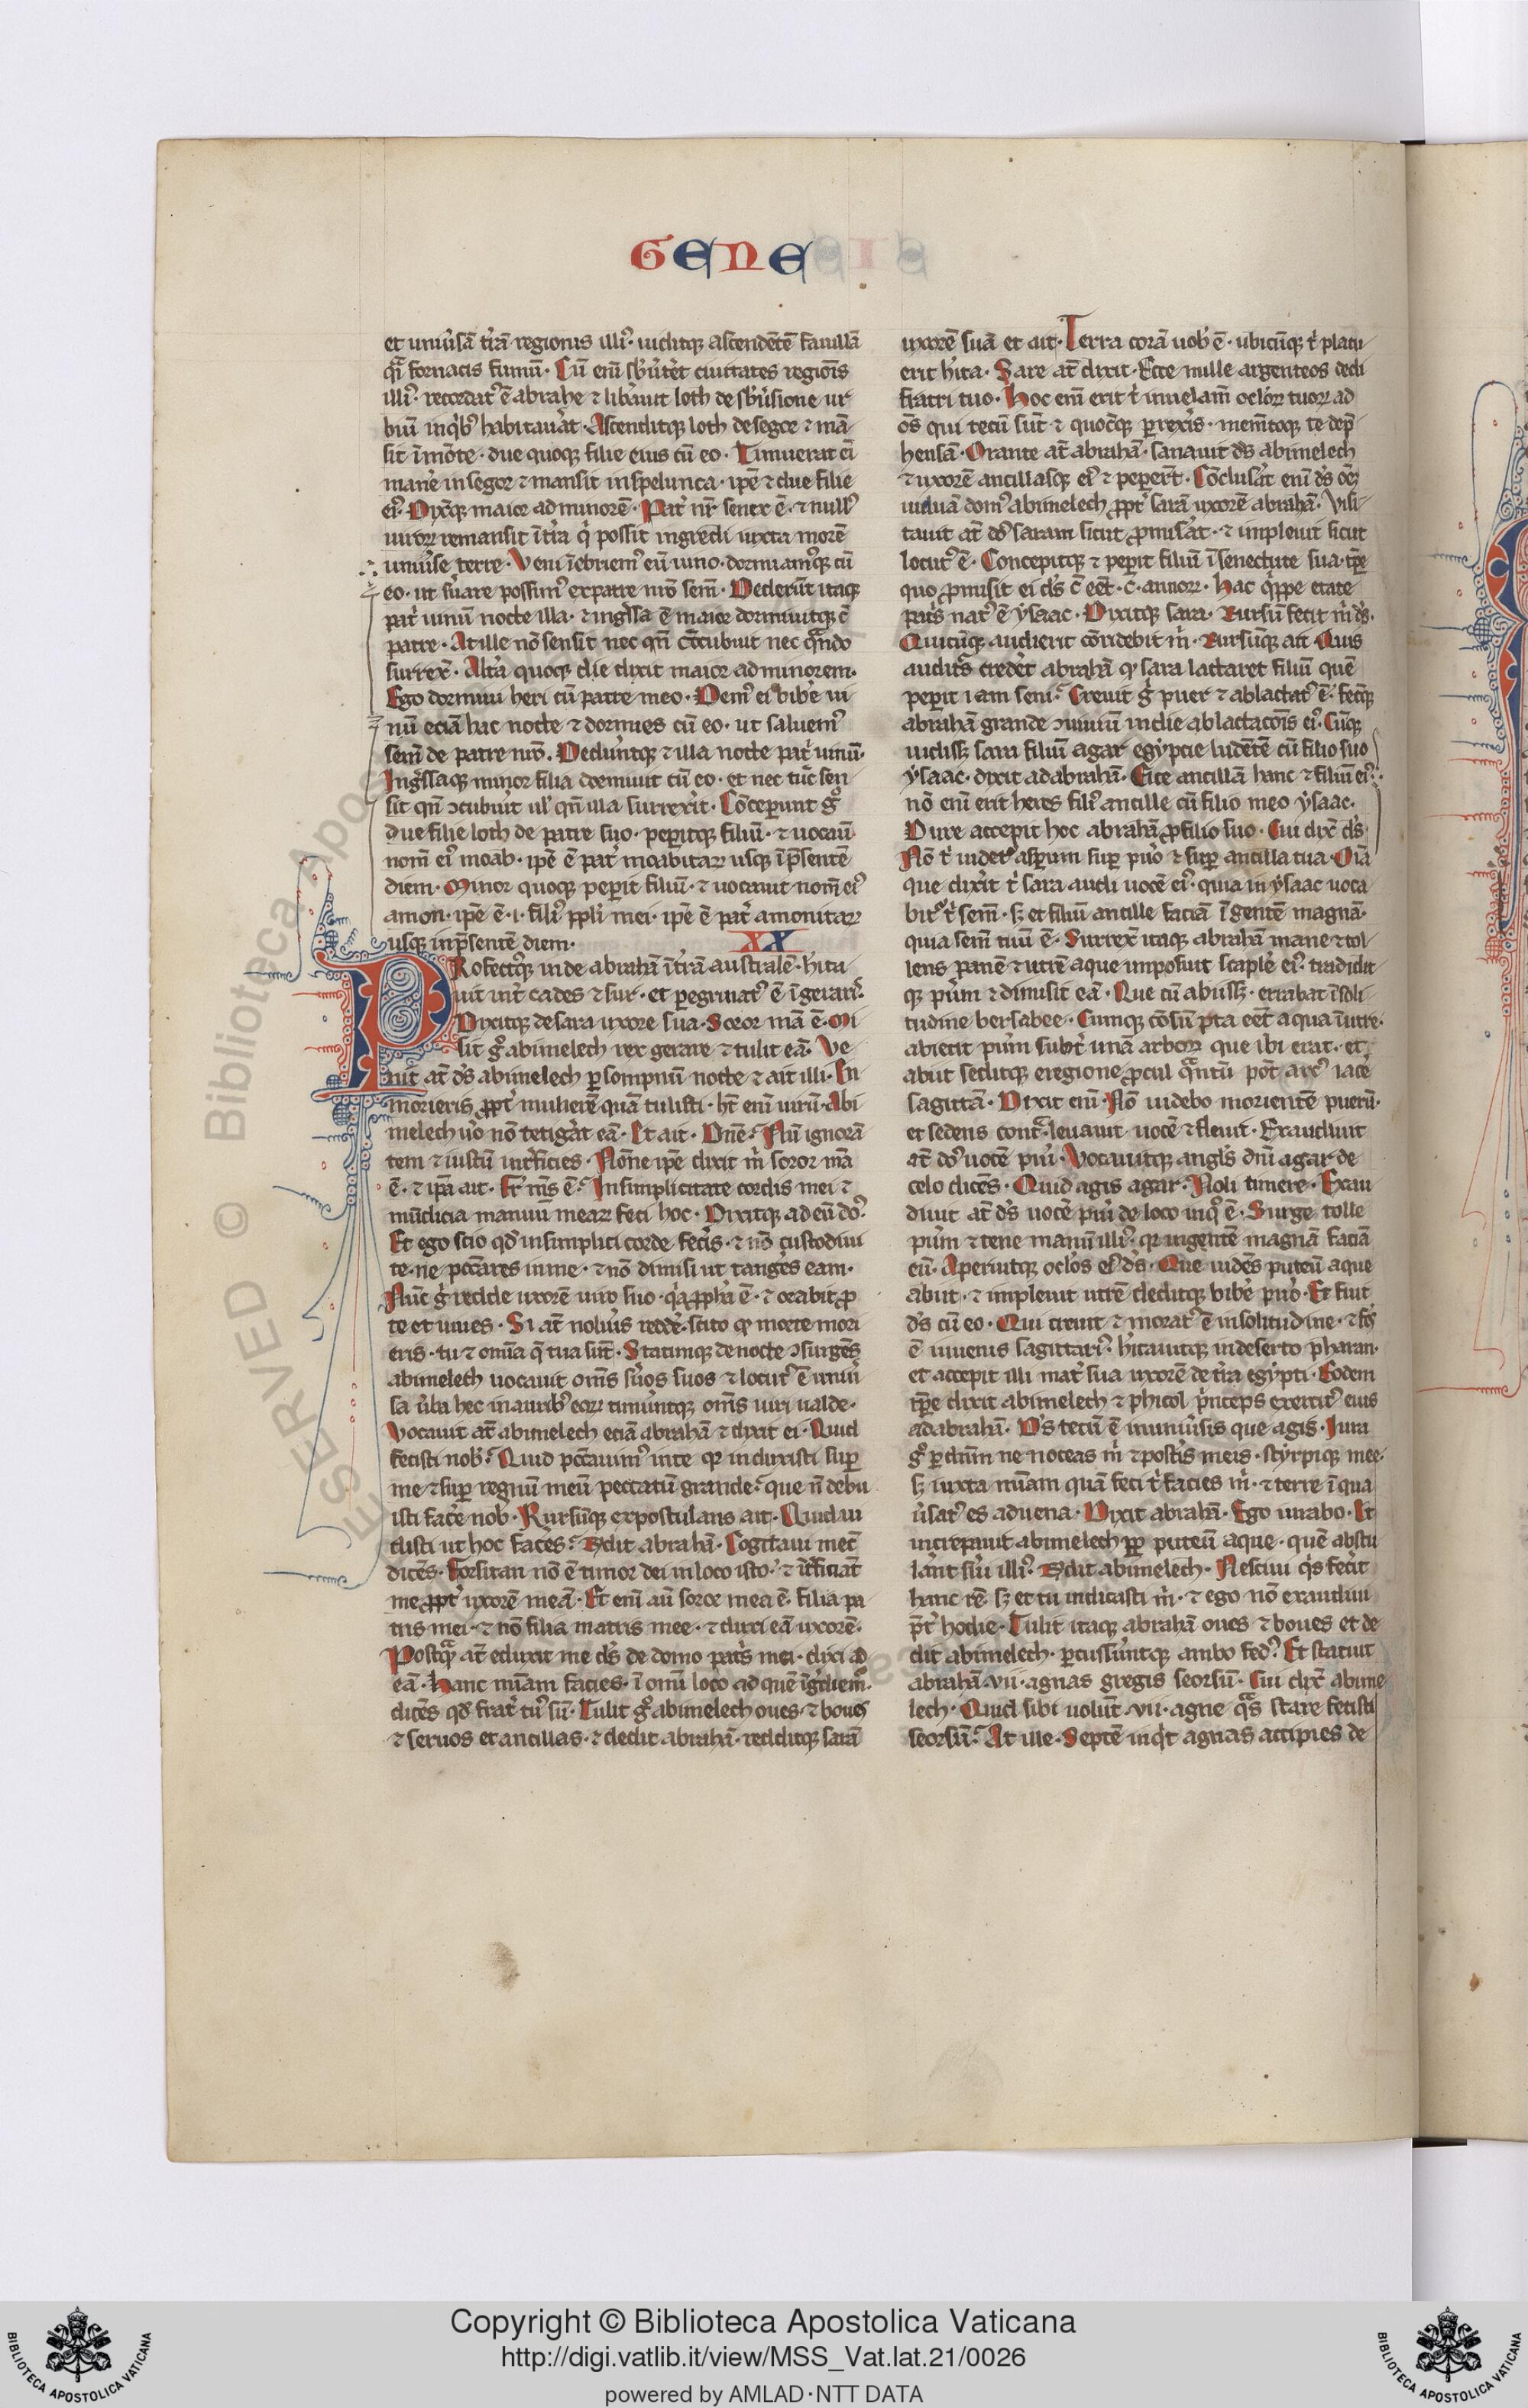 GENE
et uniũsã t̃rã regionis illi᷒· uiditq; ascendẽtẽ fauillã
q̃i fornacis fumũ· Cũ eni᷒ sb̾ũtẽt ciuitates regiõis
illi᷒· recordat᷒ ẽ abrahe ⁊ lib̾auit loth de sb̾ũsione ur
biũ inq̾b᷒ habitau̾at· Ascenditq; loth de segor ⁊ mã
sit ĩ mõte· due quoq; filie eius cũ eo· Timuerat eĩ
mane᷒ in segor ⁊ mansit in spelunca· ip̃e ⁊ due filie
ei᷒· Dix̃q; maior ad minorẽ· Pat̾ nr̃ senex ẽ· ⁊ null᷒
uiroꝝ remansit ĩ t̾ra q̾ possit ingredi iuxta morẽ
uniu̾se terre· Veni ĩebriem᷒ eũ uino· dormiam᷒q; cũ
eo· ut su̾are possim᷒ ex patre nr̃o sem̃· Dederũt itaq;
pat̾ uinũ nocte illa· ⁊ ing̾ssa ẽ maior dormiuitq; c̃
patre· At ille nõ sensit nec qñ accubuit nec q̃ndo
surrex̃· Alt̾a quoq; die dixit maior ad minorem·
Ego dormiui heri cũ patre meo· Dem᷒ ei bib̾e ui
nũ eciã hac nocte ⁊ dormies cũ eo· ut saluem᷒
sem̃ de patre nr̃o· Dedu̾ntq; ⁊ illa nocte pat̾ uinũ·
Ing̾ssaq; minor filia dormiuit cũ eo· et nec tũc sen
sit qñ ↄcubu̾it ul᷒ qñ illa surrex̾it· Cõceperunt g̊
due filie loth de patre suo· pep̾itq; filiũ· ⁊ uocauit
nom̃ ei᷒ moab· ip̃e ẽ pat̾ moabitaꝝ usq; ĩ p̃sentẽ
diem· Minor quoq; pep̾it filiũ· ⁊ uocauit nom̃ ei᷒
amon· ip̃e ẽ ·i· fili᷒ pp̃li mei· ip̃e ẽ pat̾ amonitaꝝ
usq; in p̃sentẽ diem· XX
PRofect᷒q; inde abrahã ĩ t̾rã australẽ· h̾ita
uit int̾ cades ⁊ sur· et peg̾nat᷒ ẽ ĩ geraris·
Dixitq; de sara uxore sua· Soror m̃a ẽ· Mi
sit g̊ abimelech rex gerare ⁊ tulit eã· Ve
nit at̃ d̾s abimelech p sompniũ nocte ⁊ ait illi· En
morieris ꝓpt̾ mulierẽ quã tulisti· h̃t eni᷒ uirũ· Abi
melech u̾o nõ tetig̾at eã· Et ait· Dñe· Nũ ignorã
tem ⁊ iustũ int̾ficies· Nõne ip̃e dixit m̾ soror m̃a
ẽ· ⁊ ip̃a ait· Fr̃ m̃s ẽ· In simplicitate cordis mei ⁊
mũdicia manuũ meaꝝ feci hoc· Dixitq; ad eũ do᷒·
Et ego scio qd̾ in simplici corde fec̾is· ⁊ nõ custodiui
te· ne pecc̃ares in me· ⁊ nõ dimisi ut tang̾es eam·
Nũc g̊ redde uxorẽ uiro suo· q̾a ꝓph̾a ẽ· ⁊ orabit ꝓ
te et uiues· Si at̃ nolu̾is redde᷒· scito ꝙ morte mori
eris· tu ⁊ omĩa q̃ tua sũt· Statimq; de nocte ↄsurgẽs
abimelech uocauit om̃s s̾uos suos ⁊ locut᷒ ẽ uniu̾
sa u̾ba hec in aurib᷒ eoꝝ timu̾ntq; om̃s uiri ualde·
Vocauit at̃ abimelech eciã abrahã ⁊ dixit ei· Quid
fecisti nob̾· Quid pecc̃auim᷒ in te ꝙ induxisti sup̃
me ⁊ sup̃ regnũ meũ peccatũ grande· que ñ debu
isti fac̾e nob̾· Rursũq; expostulans ait· Quid ui
disti ut hoc fac̾es· R̃dit abrahã· Cogitaui mec̃
dicẽs· Forsitan nõ ẽ timor dei in loco isto· ⁊ ĩt̾ficiẽt
me ꝓpt̾ uxorẽ meã· Et eni᷒ aũ soror mea ẽ· filia pa
tris mei· ⁊ nõ filia matris mee· ⁊ duxi eã uxorẽ·
Postq̃ at̃ eduxit me d̾s de domo pat̾s mei· dixi ad
eã· Hanc m̃iam facies· ĩ omĩ loco ad quẽ ĩg̾diem᷒·
dicẽs qd̾ frat̾ tu᷒ sũ· Tulit g̊ abimelech oues· ⁊ boues
⁊ seruos et ancillas· ⁊ dedit abrahã· reddidtq; sarã
uxorẽ suã et ait· Terra corã uob̾ ẽ· ubicũq; t̾ placu
erit h̾ita· Sare at̃ dixit· Ecce mille argenteos dedi
fratri tuo· Hoc eni᷒ erit t̾ in uelam̃ oculoꝝ tuoꝝ ad
õs qui tecũ sũt ⁊ quoc̃q; p̾rex̾is· mem̃toq; te dep̃
hensã· Orante at̃ abrahã· sanauit d̾s abimelech
⁊ uxorẽ ancillasq; ei᷒ ⁊ pepert̃· Cõclus̾at eni᷒ d̾s oẽꝫ
uuluã dom᷒ abimelech ꝓpt̾ sarã uxorẽ abrahã· Visi
tauit at̃ do᷒ saram sicut ꝓmis̾at· ⁊ impleuit sicut
locut᷒ ẽ· Concepitq; ⁊ pep̾it filiũ ĩ senectute sua· tp̃e
quo ꝓmisit ei d̾s c̃ eẽt ·C· annoꝝ· Hac q̾ppe etate
pat̾s nat᷒ ẽ ysaac· Dixitq; sara· Rursũ fecit m̾ d̾s·
Quicũq; audierit corridebit m̾· Rursũq; ait Quis
audit᷒s cred̾et abrahã ꝙ sara lactaret filiũ quẽ
pep̾it iam seni· Creuit g̊ puer ⁊ ablactat᷒ ẽ· fecitq;
abrahã grande ↄuiuiũ in die ablactacõis ei᷒· Cũq;
uidissꝫ sara filiũ agar egyptie ludẽtẽ cũ filio suo
ysaac· dixit ad abrahã· Eice ancillã hanc ⁊ filiũ ei᷒·
nõ eni᷒ erit heres fili᷒ ancille cũ filio meo ysaac·
Dure accepit hoc abrahã ꝓ filio suo· Cui dix̃ d̾s
Nõ t̾ uidet᷒ asp̾um sup̃ pu̾o ⁊ sup̃ ancilla tua· Oĩa
que dix̾it t̾ sara audi uocẽ ei᷒· quia in ysaac uoca
bit᷒ t̾ sem̃· sꝫ et filiũ ancille faciã ĩ gentẽ magnã·
quia sem̃ tuũ ẽ· Surrex̃ itaq; abrahã mane ⁊ tol
lens panẽ ⁊ utrẽ aque imposuit scapl̾e ei᷒· tradidit
q; pu̾m ⁊ dimisit eã· Que cũ abissꝫ· errabat ĩ soli
tudine bersabee· Cumq; cõsũpta eẽt aqua ĩ utre·
abiecit pu̾m subt̾ unã arborꝝ que ibi erat· et
abiit seditq; eregione ꝓcul q̃ntũ põt arc᷒ iac̾e
sagittã· Dixit eni᷒· Nõ uidebo morientẽ puerũ·
et sedens cont̃· leuauit uocẽ ⁊ fleuit· Exaudiuit
at̃ do᷒ uocẽ pu̾i· Vocauitq; angl̾s dñi agar de
celo dicẽs· Quid agis agar· Noli timere· Exau
diuit at̃ d̾s uocẽ pu̾i de loco in q̊ ẽ· Surge tolle
pu̾m ⁊ tene manũ illi᷒· qr in gentẽ magnã faciã
eũ· Aperuitq; ocl̾os ei᷒ d̾s· Que uidẽs puteũ aque
abiit· ⁊ impleuit utrẽ deditq; bib̾e pu̾o· Et fuit
d̾s cũ eo· Qui creuit ⁊ morat᷒ ẽ in solitudine· ⁊ fc̾s
ẽ iuuenis sagittari᷒· h̾itauitq; in deserto pharan·
et accepit illi mat̾ sua uxorẽ de t̾ra egypti· Eodem
tp̃e dixit abimelech ⁊ phicol p̾nceps exercit᷒ eius
ad abrahã· D̾s tecũ ẽ in uniu̾sis que agis· Iura
g̊ p dñm ne noceas m̾ ⁊ post̾is meis· styrpiq; mee·
sꝫ iuxta m̃iam quã feci t̾ facies m̾· ⁊ terre ĩ qua
u̾sat᷒ es aduena· Dixit abrahã· Ego iurabo· Et
increpauit abimelech pp̃ puteũ aque· quẽ abstu
l̾ant s̾ui illi᷒· R̃dit abimelech· Nesciui q̾s fec̾it
hanc rẽ· sꝫ et tu indicasti m̾· ⁊ ego nõ exaudiui
p̃t̾ hodie· Tulit itaq; abrahã oues ⁊ boues et de
dit abimelech· percussu̾ntq; ambo fed᷒· Et statuit
abrahã ·vii· agnas gregis seorsũ· Cui dix̃ abime
lech· Quid sibi uolũt ·vii· agne q̃s stare fecisti
seorsũ· At ille· Septẽ inq̾t agnas accipies de
Copyright © Biblioteca Apostolica Vaticana
http://digi.vatlib.it/view/MSS_Vat.lat.21/0026
powered by AMLAD·NTT DATA
BIBLIOTECA APOSTOLICA VATICANA
BIBLIOTECA APOSTOLICA VATICANA